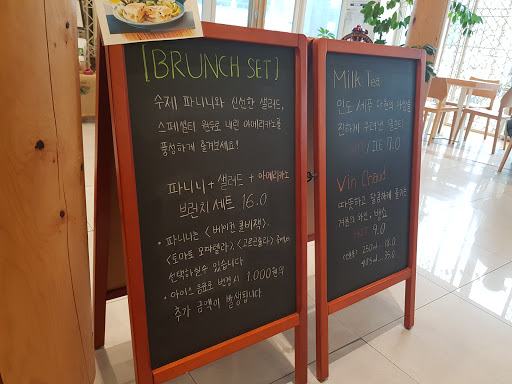 [BRUNCH SET]
수제 파니니와 신선한 샐러드,
스페셜티 원두로 내린 아메리카노를
풍성하게 즐겨보세요!
파니니 + 샐러드 + 아메리카노
브런치 세트 16.0
• 파니니는 <베이컨 콜비잭>,
<토마토 모짜렐라>, <고르곤졸라> 중에서
선택하실 수 있습니다
• 아이스 음료로 변경시 1,000원의
추가 금액이 발생됩니다.
Milk Tea
인도 아쌈 홍차의
진하게 우려낸 밀크티
HOT / ICE 7.0
Vin Chaud
따뜻하고 달콤하게 즐기는
겨울의 와인, 뱅쇼
HOT 9.0